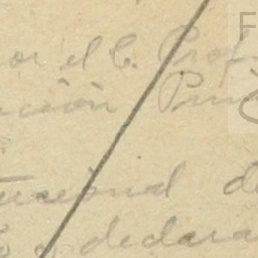 por el C. Prof.
ación Prim
tucional d
declara